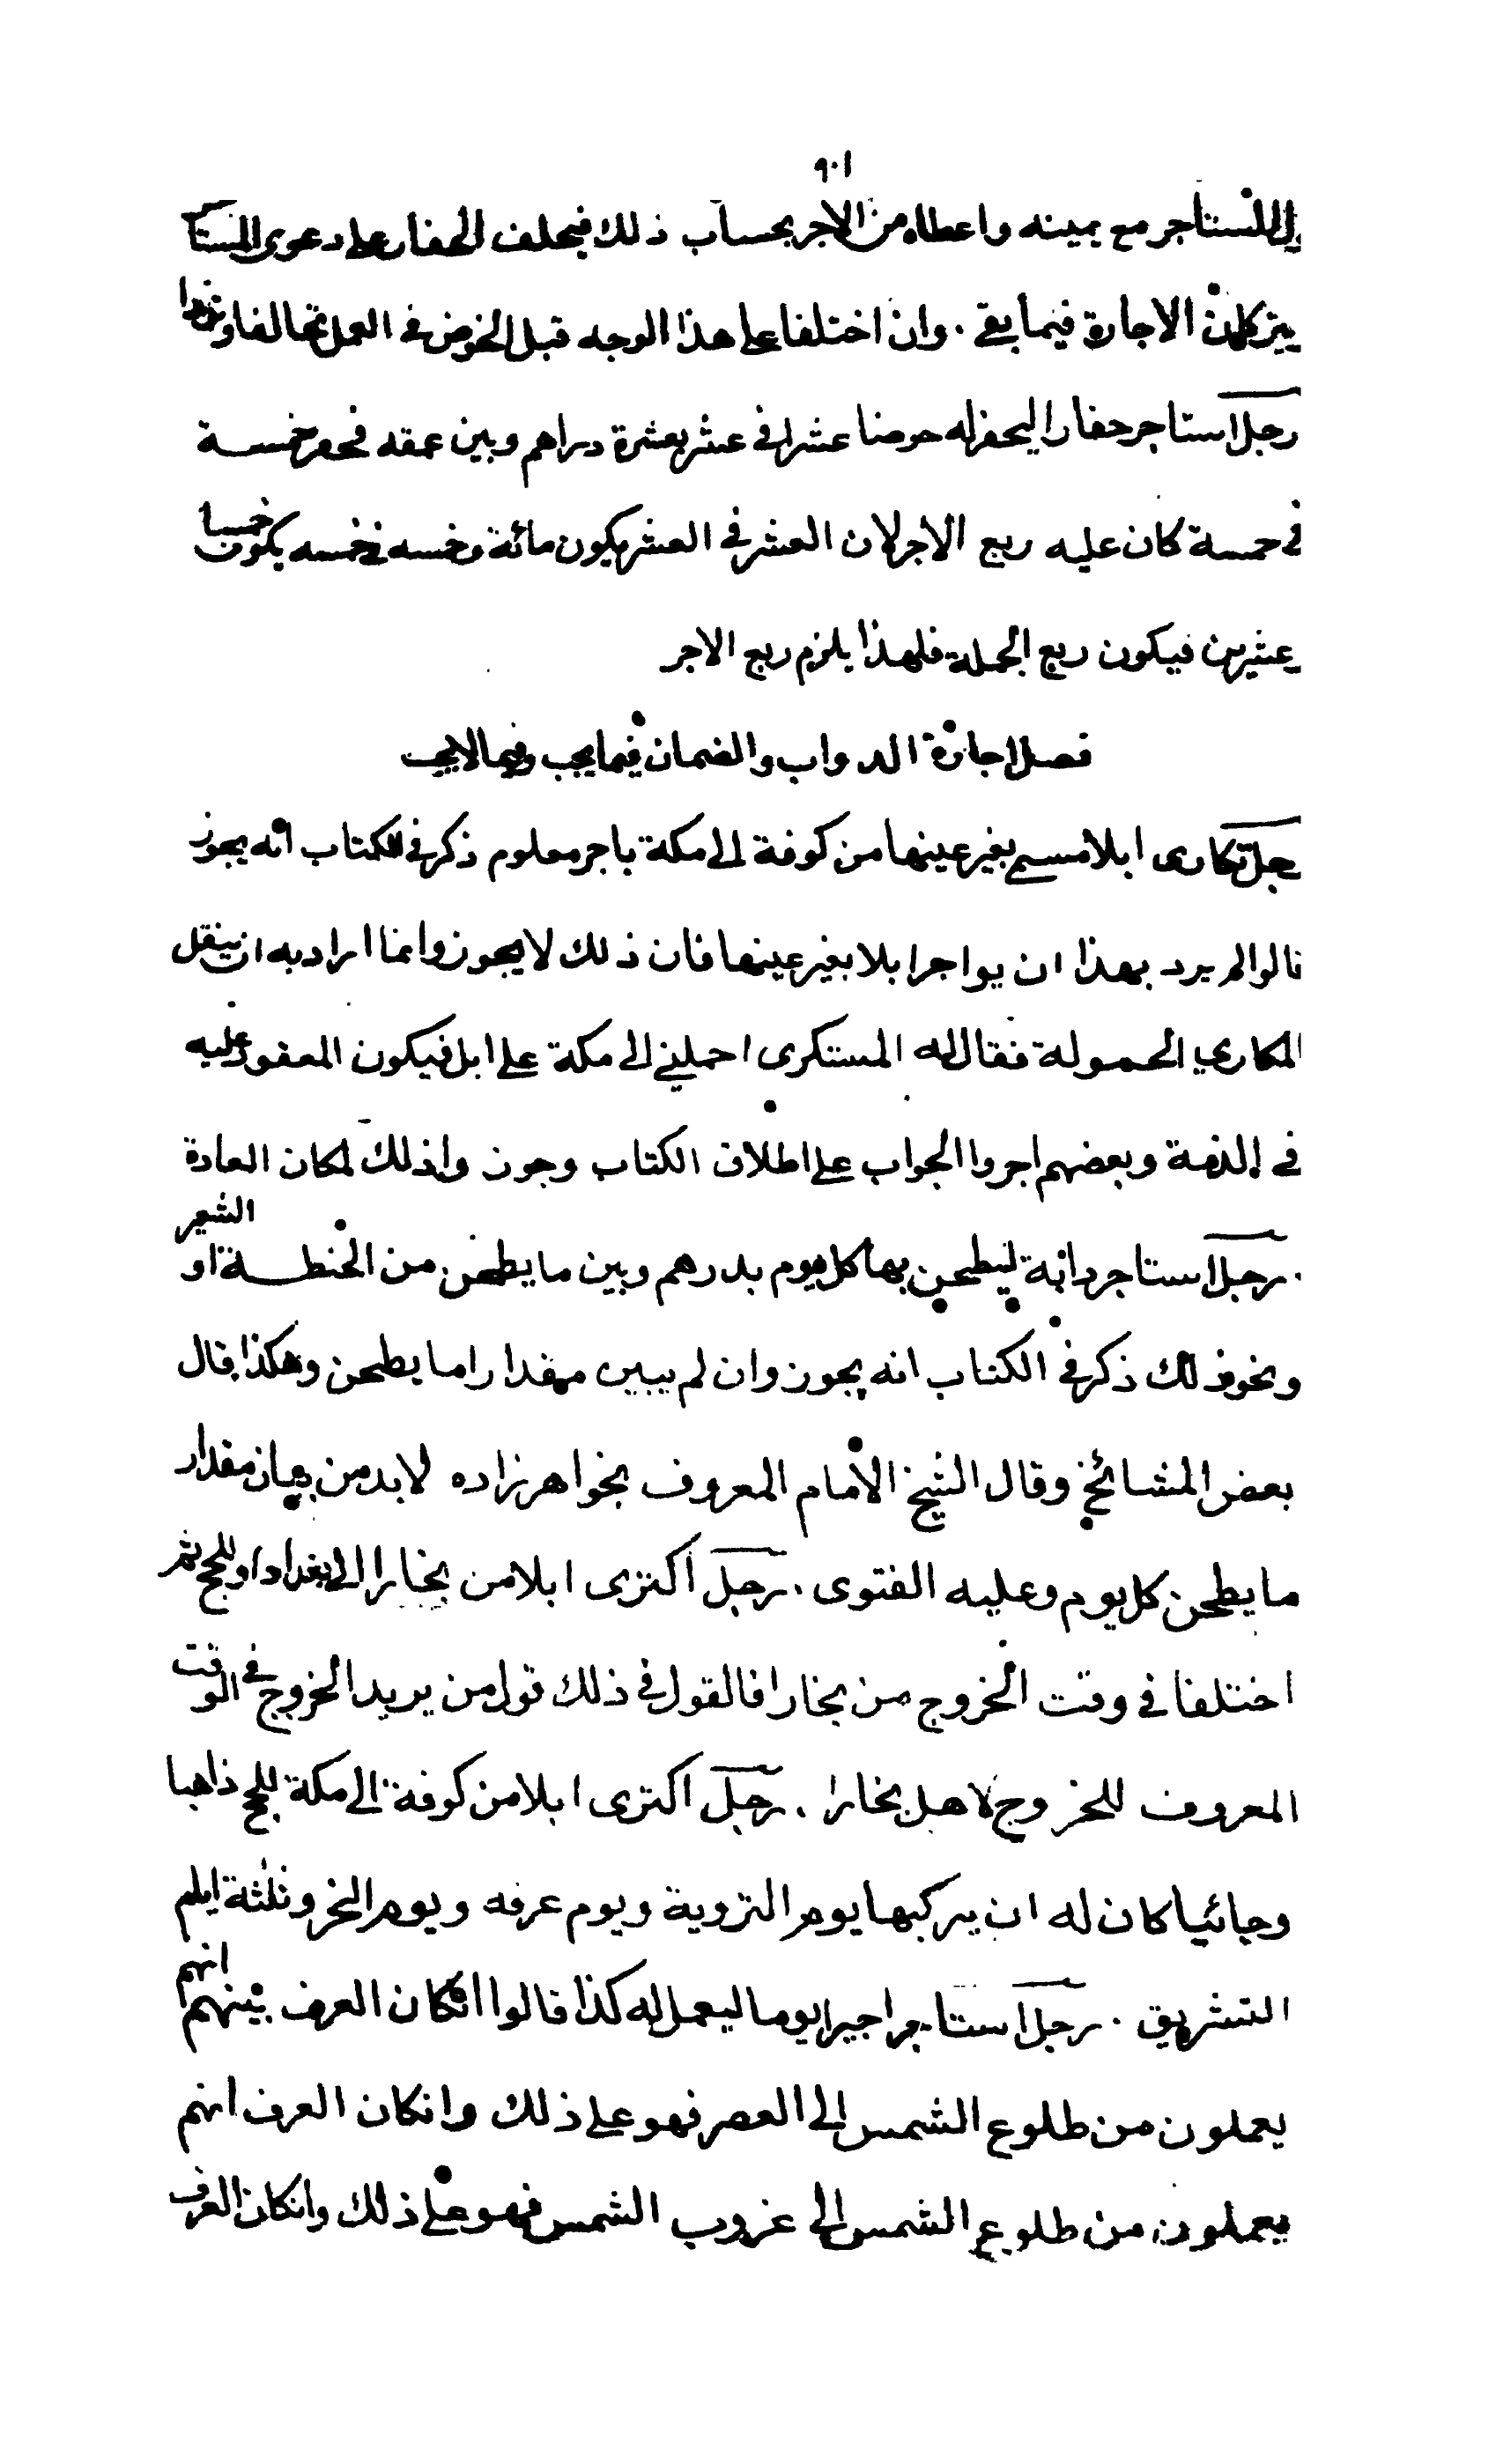 ٩٠١
المستاجر مع يمينه واعطاه من الاجر بحساب ذلك فيحلف الحفار على دعوى المستا
يتركان الاجارة فيما بقي . وان اختلفا على هذا الوجه قبل الخوض في العمل تحالفا وترادا
رجل استاجر حفارا ليحفر له حوضا عشرا في عشر بعشرة دراهم وبين عمقه فحفر خمسة
في خمسة كان عليه ربع الاجر لان العشر في العشر يكون مائة وخمسه في خمسه يكون خمسا
عشرين فيكون ربع الجملة فلهذا يلزم ربع الاجر
فصل اجارة الدواب والضمان فيما يجب وفيما لا يجب
رجل تكارى ابلا مسمى بغير عينها من كوفة الى مكة باجر معلوم ذكر في الكتاب انه يجوز
قالوا لم يرد بهذا ان يواجر ابلا بغير عينها فان ذلك لا يجوز وانما اراد به ان يتقبل
المكاري الحمولة فقال له المستكرى احملني الى مكة على ابل فيكون المعقود عليه
في الذمة وبعضهم اجروا الجواب على اطلاق الكتاب وجوزوا ذلك لمكان العادة
. رجل استاجر دابة ليطحن بها كل يوم بدرهم وبين ما يطحن من الحنطة او الشعير
ونحو ذلك ذكر في الكتاب انه يجوز وان لم يبين مقدار ما يطحن وهكذا قال
بعض المشائخ وقال الشيخ الامام المعروف بخواهرزاده لا بد من بيان مقدار
ما يطحن كل يوم وعليه الفتوى . رجل اكترى ابلا من بخارا الى بغداد او للحج ثم
اختلفا في وقت الخروج من بخارا فالقول في ذلك قول من يريد الخروج في الوقت
المعروف للخروج لاهل بخارا . رجل اكترى ابلا من كوفة الى مكة للحج ذاهبا
وجائيا كان له ان يركبها يوم التروية ويوم عرفه ويوم النحر وثلثة ايام
التشريق . رجل استاجر اجيرا يوما ليعمل له كذا قالوا انكان العرف بينهم انهم
يعملون من طلوع الشمس الى العصر فهو على ذلك وانكان العرف انهم
يعملون من طلوع الشمس الى غروب الشمس فهو على ذلك وانكان العرف